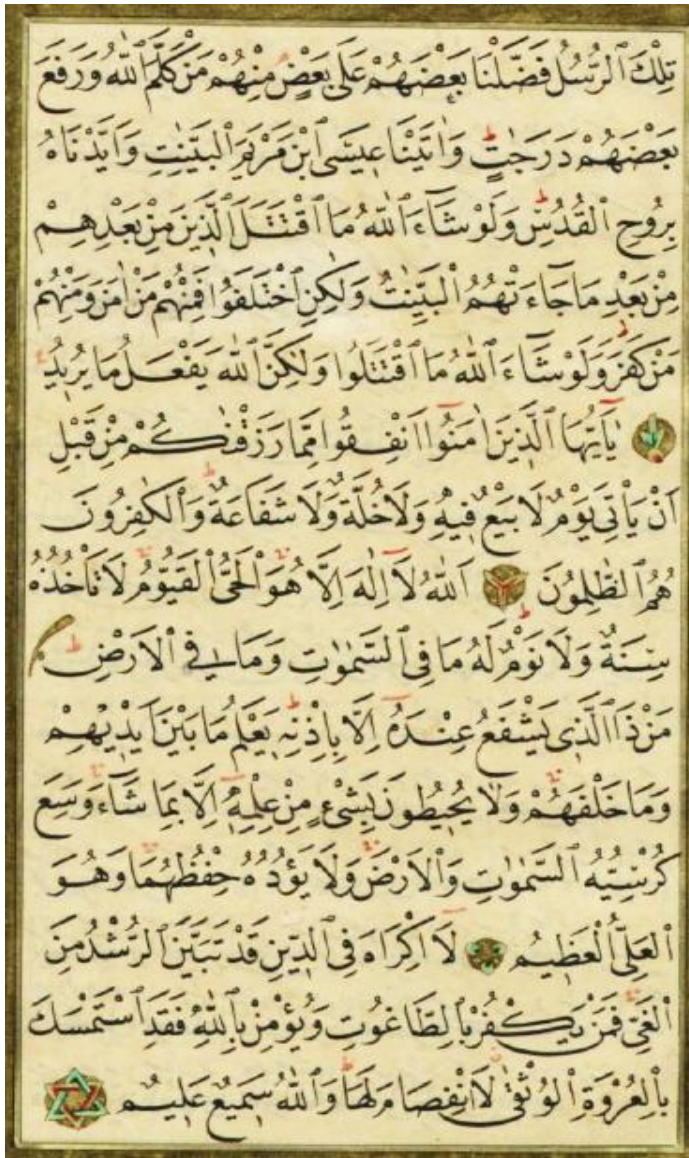 تِلْكَ ٱلرُّسُلُ فَضَّلْنَا بَعْضَهُمْ عَلٰى بَعْضٍ مِنْهُمْ مَنْ كَلَّمَ ٱللّٰهُ وَرَفَعَ
بَعْضَهُمْ دَرَجَاتٍ وَاٰتَيْنَا عِيسَى ٱبْنَ مَرْيَمَ ٱلْبَيِّنَاتِ وَاَيَّدْنَاهُ
بِرُوحِ ٱلْقُدُسِ وَلَوْ شَآءَ ٱللّٰهُ مَا ٱقْتَتَلَ ٱلَّذِينَ مِنْ بَعْدِهِمْ
مِنْ بَعْدِ مَا جَآءَتْهُمُ ٱلْبَيِّنَاتُ وَلٰكِنِ ٱخْتَلَفُوا فَمِنْهُمْ مَنْ اٰمَنَ وَمِنْهُمْ
مَنْ كَفَرَ وَلَوْ شَآءَ ٱللّٰهُ مَا ٱقْتَتَلُوا وَلٰكِنَّ ٱللّٰهَ يَفْعَلُ مَا يُرِيدُ
يَآ اَيُّهَا ٱلَّذِينَ اٰمَنُوٓا اَنْفِقُوا مِمَّا رَزَقْنٰكُمْ مِنْ قَبْلِ
اَنْ يَاْتِىَ يَوْمٌ لَا بَيْعٌ فِيهِ وَلَا خُلَّةٌ وَلَا شَفَاعَةٌ وَٱلْكٰفِرُونَ
هُمُ ٱلظّٰلِمُونَ اَللّٰهُ لَآ اِلٰهَ اِلَّا هُوَ ٱلْحَىُّ ٱلْقَيُّومُ لَا تَاْخُذُهُ
سِنَةٌ وَلَا نَوْمٌ لَهُ مَا فِى ٱلسَّمٰوَاتِ وَمَا فِى ٱلْاَرْضِ
مَنْ ذَا ٱلَّذِى يَشْفَعُ عِنْدَهُ اِلَّا بِاِذْنِهِ يَعْلَمُ مَا بَيْنَ اَيْدِيهِمْ
وَمَا خَلْفَهُمْ وَلَا يُحِيطُونَ بِشَىْءٍ مِنْ عِلْمِهِ اِلَّا بِمَا شَآءَ وَسِعَ
كُرْسِيُّهُ ٱلسَّمٰوَاتِ وَٱلْاَرْضَ وَلَا يَؤُدُهُ حِفْظُهُمَا وَهُوَ
ٱلْعَلِىُّ ٱلْعَظِيمُ لَآ اِكْرَاهَ فِى ٱلدِّينِ قَدْ تَبَيَّنَ ٱلرُّشْدُ مِنَ
ٱلْغَىِّ فَمَنْ يَكْفُرْ بِٱلطَّاغُوتِ وَيُؤْمِنْ بِٱللّٰهِ فَقَدِ ٱسْتَمْسَكَ
بِٱلْعُرْوَةِ ٱلْوُثْقٰى لَا ٱنْفِصَامَ لَهَا وَٱللّٰهُ سَمِيعٌ عَلِيمٌ